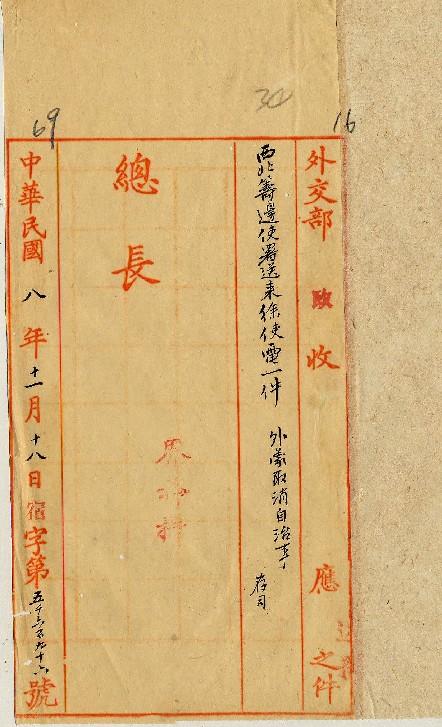 30
16
69
外交部 政 收 應 之件
西北籌邊使署送來徐使電一件 外蒙取消自治事 存司
總長
界務科
中華民國八年十一月十八日宿字第五千六百九十六號